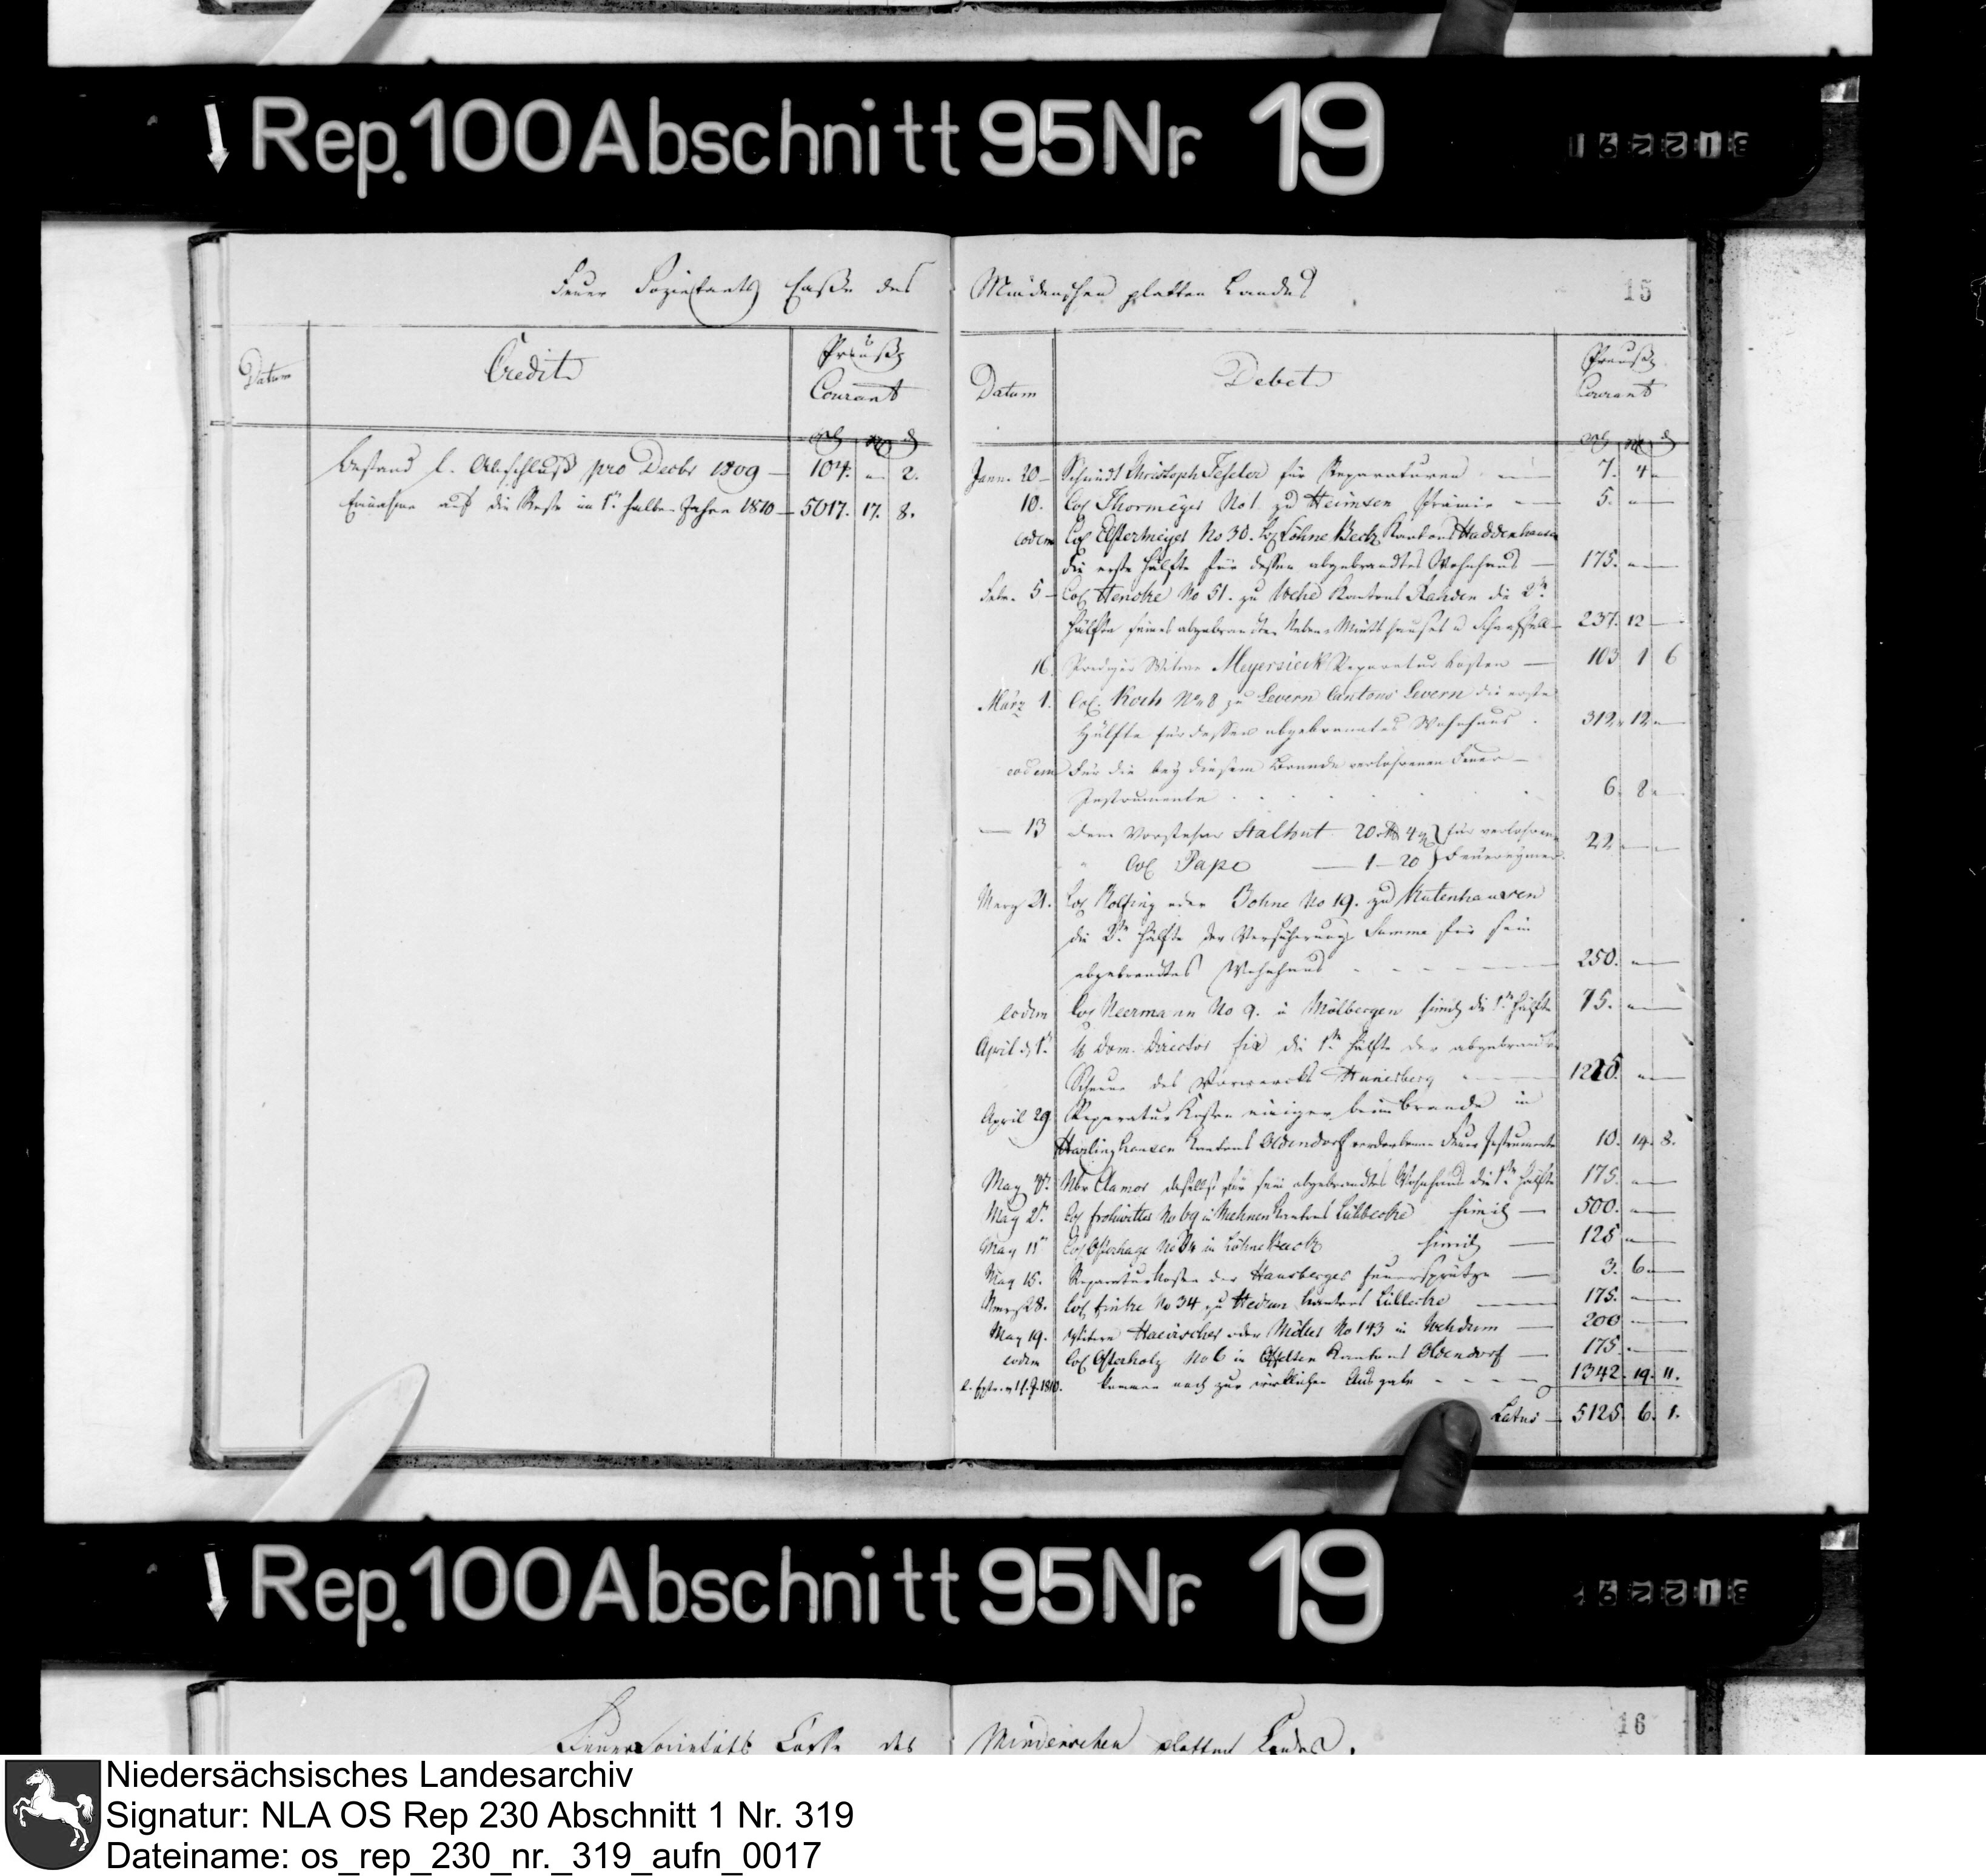 Rep. 100 Abschnitt 95 Nr. 19
Feuer Sozietaets Casse des Mindenschen platten Landes
15
Datum Credit Preuß Courant
Bestand l. Abschluß pro Decbr 1809 — 104. — 2.
Einnahme auf die Reste im 1n halben Jahre 1810 — 5017. 17. 8.
Datum Debet Preuß Courant
Janr. 20 — Schmidt Christoph Feseler für Reparaturen — 7. 4 —
10. Col Thormeyer No 1 zu Heimsen Prämie — 5. —
eodem Col Elstermeyer No 30. Löhne Beck Kantons Haddenhausen
die erste Hälfte für dessen abgebrandtes Wohnhaus — 175. —
Febr. 5 — Col Hencke No 51. zu Wehe Kantons Rahden die 2te
Hälfte seines abgebrandten Neben Mieths hauses u Schaafstall — 237. 12 —
16. Prediger Witwe Meyersieck Reparatur Kosten — 103 1 6
März 1. Col. Koch No 8 zu Levern Cantons Levern die erste
Hälfte für dessen abgebranntes Wohnhaus . 312. 12 —
eodem Für die bey diesem Brande verlohrenen Feuer —
Instrumente . . . . 6. 8. —
— 13 dem Vorsteher Stalhut 20 4 für verlohrene
" Col Pape — 1 — 20 Feuereymer 22 — —
Merz 21. Col Rolfing oder Bohne No 19. zu Kutenhausen
die 2te Hälfte der Versicherungs Summe für sein
abgebrandtes Wohnhaus — 250. —
eodem Col Neermann No 9. in Möllbergen simil die 1te Hälfte 75. —
April d 1t Dom. Director für die 1te Hälfte der abgebrandten
Scheune des Vorwercks — 1225. —
April 29 Reparatur Kosten einiger beim Brande in
Harlinghausen Kantons Oldendorf verdorbenen Feuer Instrumente 10. 14. 8.
May Nbr Clamor daselbst für sein abgebrandtes Wohnhaus die 1te Hälfte 175. —
May 2t. Col Frohwitter No 69 in Mehnen Kantons Lübbecke simil — 500. —
May 11t Col Osterhage No 84 in Löhnebeck simil — 125 —
May 15. Reparaturkosten der Hausberger Feuersprütze — 3. 6. —
28. Col Finke No 34 zu Hedem Kantons Lübbecke — 175. —
May 19. Witwe oder Möller No 143 in Wehdem — 200 —
eodem Col Osterholz No 6 in Offelten Kantons Oldendorf — 175. —
1810. kommen noch zur wirklichen Ausgabe — 1342. 19. 11.
Latus — 5125. 6. 1.
Rep. 100 Abschnitt 95 Nr. 19
Feuer Societäts Casse des Mindenschen platten Landes.
16
Niedersächsisches Landesarchiv
Signatur: NLA OS Rep 230 Abschnitt 1 Nr. 319
Dateiname: os_rep_230_nr._319_aufn_0017